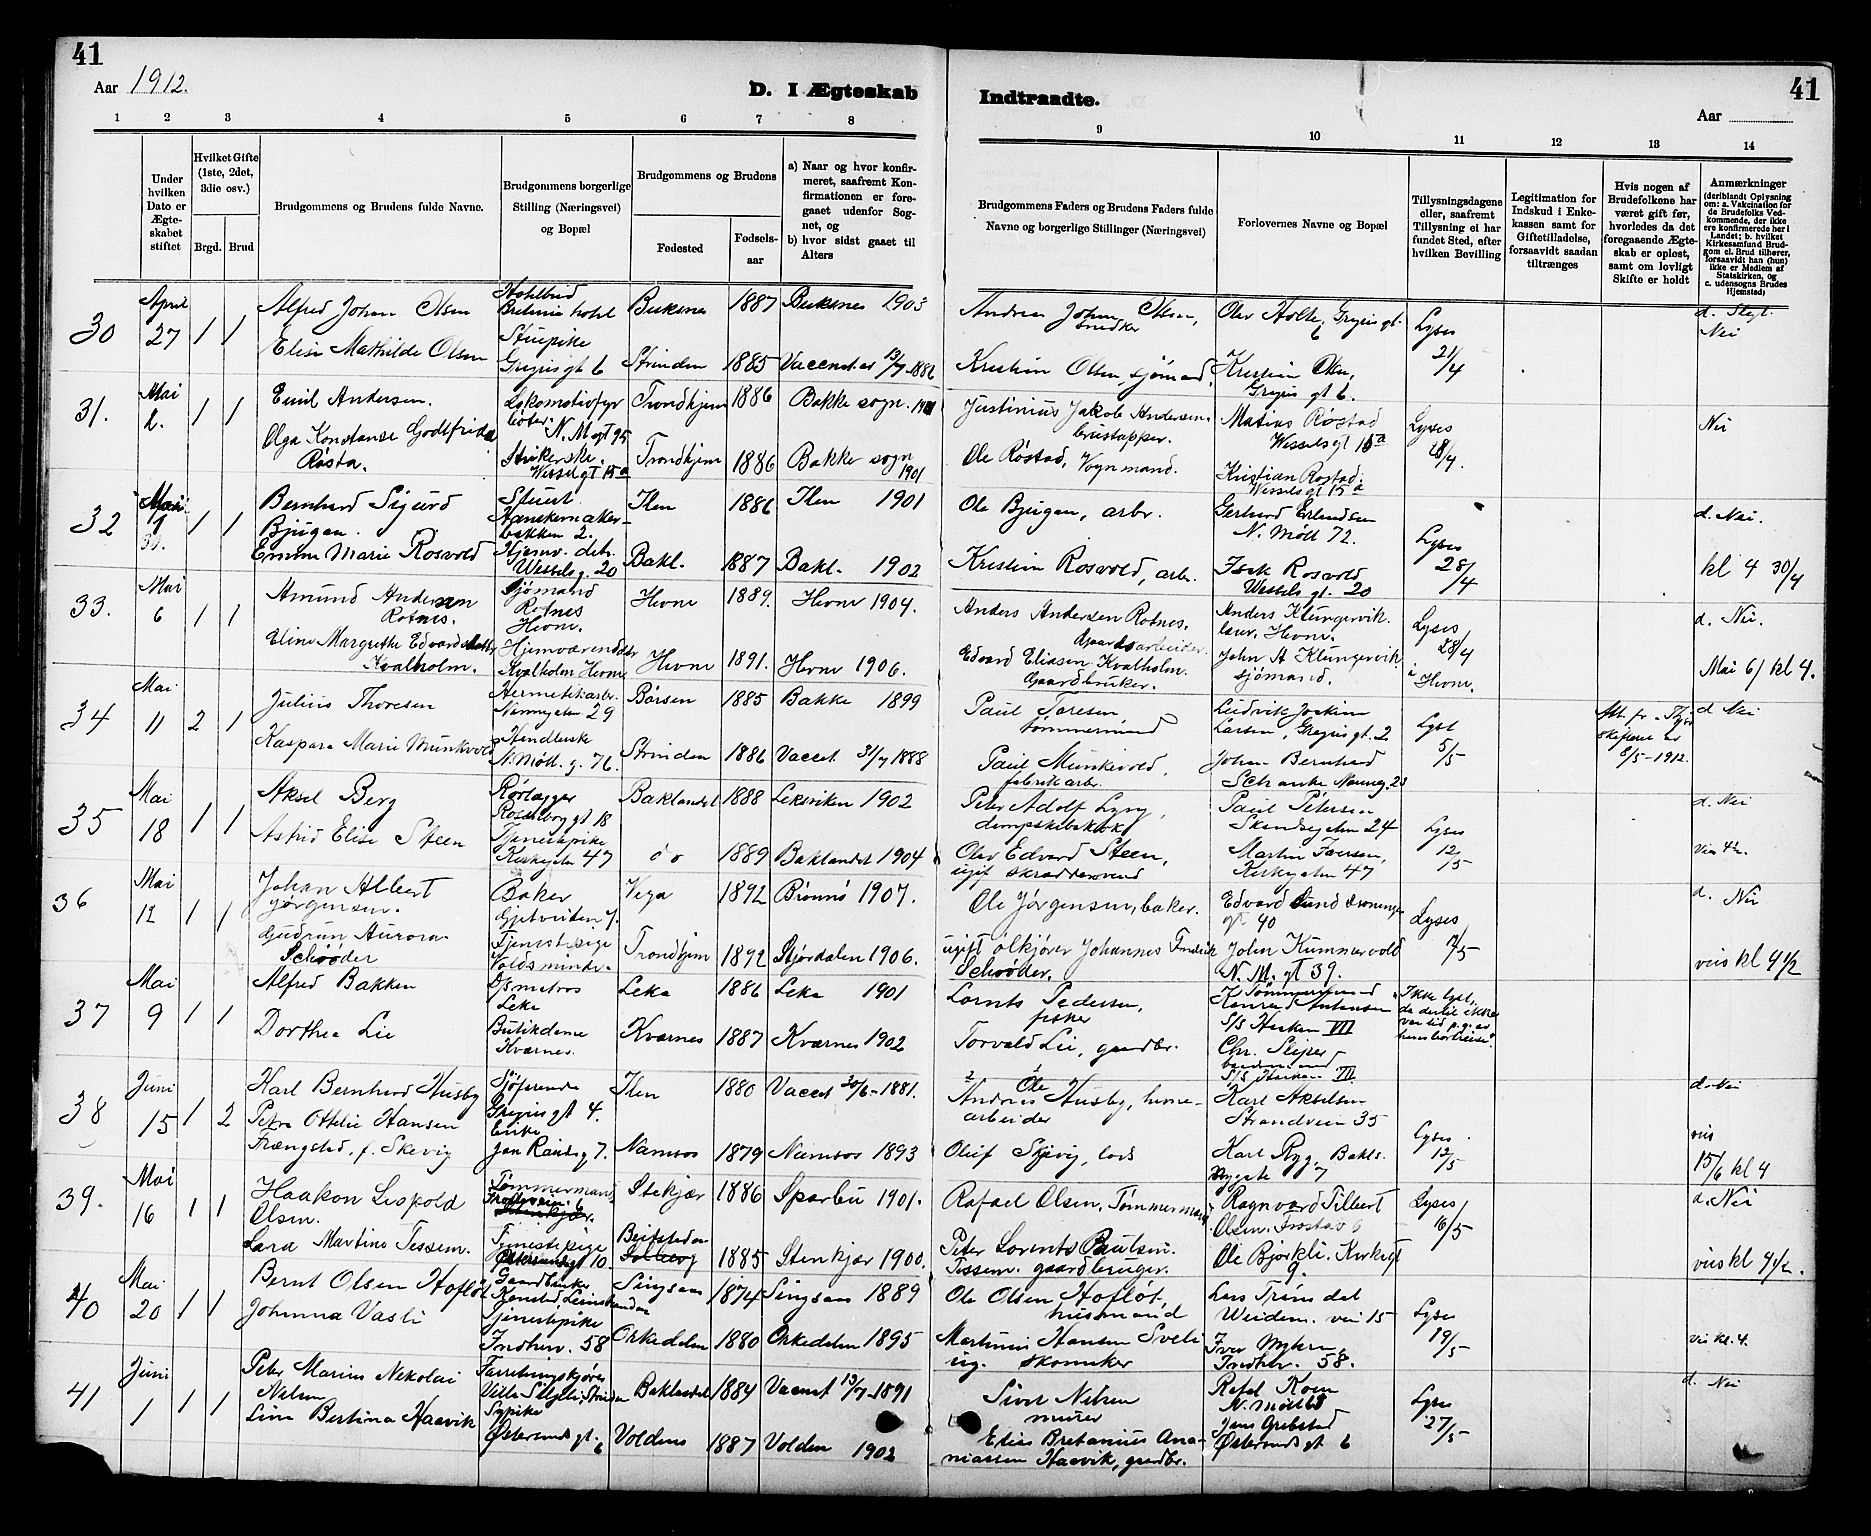 41
41
Aar 1912.
D. I Ægteskab
Indtraadte.
Aar
1 2 3 4 5 6 7 8
9 10 11 12 13 14
Under hvilken Dato er Ægteskabet stiftet
Hvilket Gifte (1ste, 2det, 3die osv.)
Brgd. Brud
Brudgommens og Brudens fulde Navne.
Brudgommens borgerlige Stilling (Næringsvei) og Bopæl
Brudgommens og Brudens
Fødested
Fødsels-aar
a) Naar og hvor konfirmeret, saafremt Konfirmationen er foregaaet udenfor Sognet, og
b) hvor sidst gaaet til Alters
Brudgommens Faders og Brudens Faders fulde Navne og borgerlige Stillinger (Næringsvei)
Forlovernes Navne og Bopæl
Tillysningsdagene eller, saafremt Tillysning ei har fundet Sted, efter hvilken Bevilling
Legitimation for Indskud i Enkekassen samt for Giftetilladelse, forsaavidt saadan tiltrænges
Hvis nogen af Brudefolkene har været gift før, hvorledes da det foregaaende Ægteskab er opløst, samt om lovligt Skifte er holdt
Anmærkninger (deriblandt Oplysning om: a. Vakcination for de Brudefolks Vedkommende, der ikke ere konfirmerede her i Landet; b. hvilket Kirkesamfund Brudgom el. Brud tilhører, forsaavidt han (hun) ikke er Medlem af Statskirken, og c. udensogns Brudes Hjemsted)
30 April 27 1 1
Alfred Johan Olsen Buksnes 1887 Buksnes 1903 Andreas Johan Olsen, snedker Olav Holte, Gregus gt. 6 Lyses 21/4 Nei
Elise Mathilde Olsen Gregus gt 6 Strinden 1885 Kristian Olsen, sjømand Kristian Olsen, Gregus gt 6.
31. Mai 2. 1 1
Emil Andersen. N. M gt 95 Trondhjem 1886 Bakke sogn. Justinius Jakob Andersen. Matias Røstad Wessels gt 15a Lyses 28/4. Nei
Olga Konstanse Godtfrida Røsta. Wessel gt 15a Trondhjem 1886 Bakke sogn 1901 Ole Røstad, Vognmand. Kristian Røstad. Wessels gt 15a
32 Mai 1 1 1
Bernhard Sigurd Bjugan. Hanskemakerbakken 2. Ilen 1886 Ilen 1901 Ole Bjugan, arbr. Gerhard Erlandsen N. Møll 72. Lyses 28/4 d. Nei.
Emma Marie Rosvold Hjemv. dtr. Wessels g. 20 Bakl. 1887 Bakl. 1902 Kristian Rosvold, arb. Isak Rosvold Wessels gt. 20 kl 4 30/4
33. Mai 6 1 1
Amund Andersen Rotnes. Sjømand Rotnes Hevne. Hevne 1889. Hevne 1904. Anders Andersen Rotnes, Gaardsarbeider. Anders Klungervik. Hevne. Lyses 28/4 i Hevne. d. Nei.
Eline Margrethe Edvardsdatter Kvalholm. Hjemværende dtr Kvalholm Hevne Hevne 1891. Hevne 1906. Edvard Eliassen Kvalholm. Gaardbruker. John A Klungervik sjømand. Mai 6/ kl 4.
34 Mai 11 2 1
Julius Thoresen Hermetikarbr. Nonnegaten 29 Børsen 1885 Bakke 1899 Paul Toresen, tømmermand Ludvik Joakim Larsen, Gregus gt. 2 Lyst 5/5 8/5-1912. d Nei
Kaspara Marie Munkvold N. Møll. g. 76. Strinden 1886 Vaccet 31/7 1888 Paul Munkvold, fabrikarb. Johan Bernhard Schanke Nonneg. 23
35 Mai 18 1 1
Aksel Berg Rørlægger Rosenborg gt 18 Baklandet 1888 Leksviken 1902 Peter Adolf Lyng, Paul Petersen 24 Lyses 12/5 d. Nei
Astrid Elise Steen Tjenestepike Kirkegaten 47 do 1889 Baklandet 1904 Olav Edvard Steen, ugift skræddersvend Martin Iversen, Kirkegaten 47
36 Mai 12 1 1
Johan Albert Jørgensen. Baker Gjetveiten 7. Vega 1892 Brønnø 1907. Ole Jørgensen, baker. Edvard Lund Dronningens gt. 40 Lyses d. Nei
Gudrun Aurora Schrøder Tjenestepige Voldsminde. Trondhjem 1892 Stjørdalen 1906. ugift ølkjører Johannes Fredrik Schrøder. John Kummervold N. M. gt 39. vies kl 4 1/2
37 Mai 9 1 1
Alfred Bakken Leka Leka 1886 Leka 1901 Lornts Pedersen, fisker Tømmermand Konrad Antonsen S/S Haakon VII Ikke lyst, da dertil ikke var tid p.g.av hans bortreise.
Dorthea Lie Butikdame Kværnes. Kværnes 1887 Kværnes 1902 Torvald Lie, gaardbr. Chr. S/S Haakon VII.
38 Juni 15 1 2
Karl Bernhard Husby Sjøfarende Gregus gt 4. Ilen 1880 Vaccet 30/6-1881. Ole Andreas Husby, havnearbeider Karl Akselsen Strandveien 35 Lyses 12/5 d. Nei
Petra Ottilie Hansen Frængsted, f. Skevig Enke 7. Namsos 1879 Namsos 1893 Oluf Skjevig, lods Karl Ryg, Bakl. 7 vies 15/6 kl 4
39. Mai 16 1 1
Haakon Leopold Olsen. Tømmermand Stenkjær. Stekjær 1886 Sparbu 1901. Rafael Olsen, Tømmermand Ragnvard Tilbert Olsen. Lyses 16/5 d. Nei
Lara Martine Tessem. Tjenestepige gt 10. Beitstaden 1885 Stenkjær 1900. Peter Lorents Paulsen Tessem. gaardbruger. Ole Bjørkli. Kirkegt 9 vies kl 4 1/2.
40 Mai 20 1 1
Bernt Olsen Hofløt Gaardbruker Leinstranden Singsaas 1874 Singsaas 1889 Ole Olsen Hofløt, husmand Lars Trøndal Weidem. vei 15 Lyses 19/5
Johanna Vasli Tjenestepike Indherv. 58 Orkedalen 1880 Orkedalen 1895 Martinus Hansen Sveli ug. skomaker Iver Myhre, Indhrv. 58. vies kl. 4.
41 Juni 1 1 1
Peter Marius Nikolai Nilsen Baklandet 1884 Vaccet 13/7-1891 Sivert Nilsen murer N. Møll Lyses 27/5 d. Nei
Lina Bertina Haavik Sypike Østersunds gt. 6 Voldens 1887 Volden 1902 Elias Bretanius Ananiassen Haavik, gaardbr. Jens Grebstad Østersunds gt 6